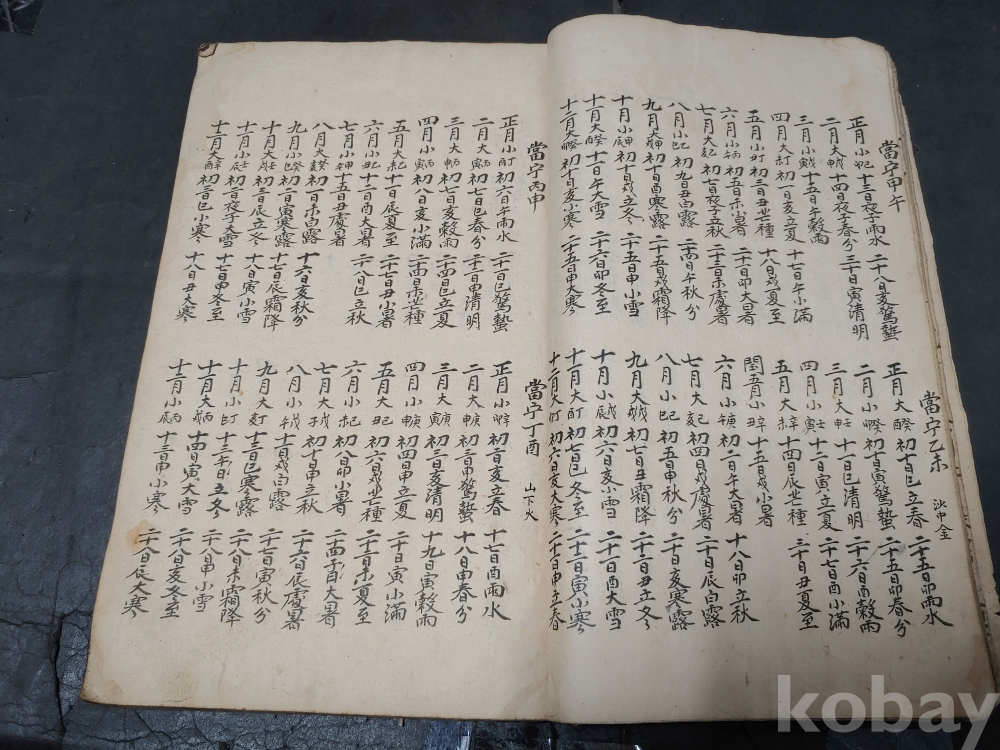 當宁甲午
正月小 十三日夜子雨水 二十八日亥驚蟄
二月大 十四日夜子春分 三十日寅清明
三月小 十五日午穀雨
四月大 初一日亥立夏 十七日午小滿
五月小 初三日丑芒種 十八日戌夏至
六月小 初五日未小暑 二十一日卯大暑
七月大 初七日夜子立秋 二十三日未處暑
八月小 初九日丑白露 二十四日午秋分
九月大 初十日酉寒露 二十五日戌霜降
十月小 十日戌立冬 二十五日申小雪
十一月大 十一日午大雪 二十六日卯冬至
十二月大 初十日亥小寒 二十五日申大寒
當宁乙未 沙中金
正月大 初十日巳立春 二十五日卯雨水
二月小 初十日寅驚蟄 二十五日卯春分
三月大 十一日巳清明 二十六日酉穀雨
四月小 十二日寅立夏 二十七日酉小滿
五月大 十四日辰芒種 三十日丑夏至
閏五月小 十五日戌小暑
六月小 初二日午大暑 十八日卯立秋
七月大 初四日戌處暑 二十日辰白露
八月小 初五日申秋分 二十日亥寒露
九月大 初七日丑霜降 二十二日丑立冬
十月小 初六日亥小雪 二十一日酉大雪
十一月大 初七日巳冬至 二十二日寅小寒
十二月大 初六日亥大寒 二十一日申立春
當宁丙申
正月小 初六日午雨水 二十一日巳驚蟄
二月大 初七日巳春分 二十二日申清明
三月大 初七日亥穀雨 二十四日巳立夏
四月小 初八日亥小滿 二十四日未芒種
五月大 十一日辰夏至 二十七日丑小暑
六月小 十二日酉大暑 二十八日巳立秋
七月小 十五日丑處暑
八月大 初一日未白露 十六日亥秋分
九月小 初二日寅寒露 十七日辰霜降
十月大 初三日辰立冬 十八日寅小雪
十一月小 初二日夜子大雪 十七日申冬至
十二月大 初三日巳小寒 十八日丑大寒
當宁丁酉 山下火
正月小 初二日亥立春 十七日酉雨水
二月大 初三日申驚蟄 十八日申春分
三月大 初三日亥清明 十九日寅穀雨
四月小 初四日申立夏 二十日寅小滿
五月大 初六日戌芒種 二十二日未夏至
六月小 初八日卯小暑 二十四日子大暑
七月大 初十日申立秋 二十六日辰處暑
八月小 十一日戌白露 二十七日寅秋分
九月大 十三日巳寒露 二十八日未霜降
十月小 十三日午立冬 二十八日申小雪
十一月大 十四日寅大雪 二十八日亥冬至
十二月小 十三日申小寒 二十八日辰大寒
kobay